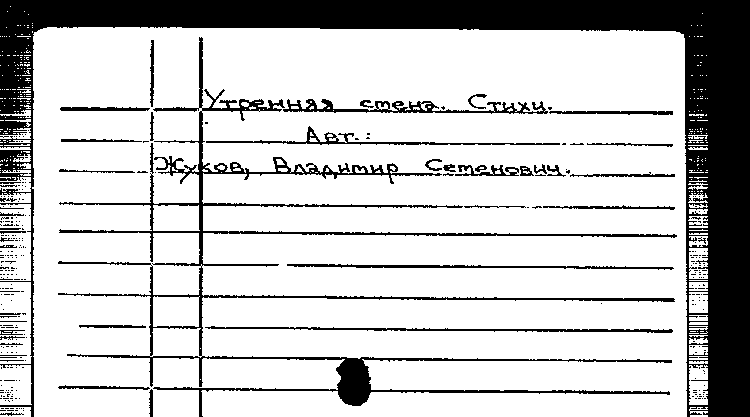 Утренняя смена. Стихи.
Авт.:
Жуков, Владимир Семенович.